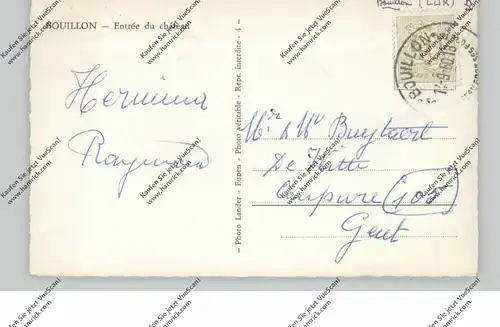 Bouillon (LUX)
BOUILLON — Entrée du château
BOUILLON
Hermina
Raymond
Photo Lander - Eupen - Photo véritable - Repr. interdite - 4
Mr & Me Buytaert
De
Coupure 100
Gent
Kaufen Sie jetzt bei VueScan!
www.hamrick.com